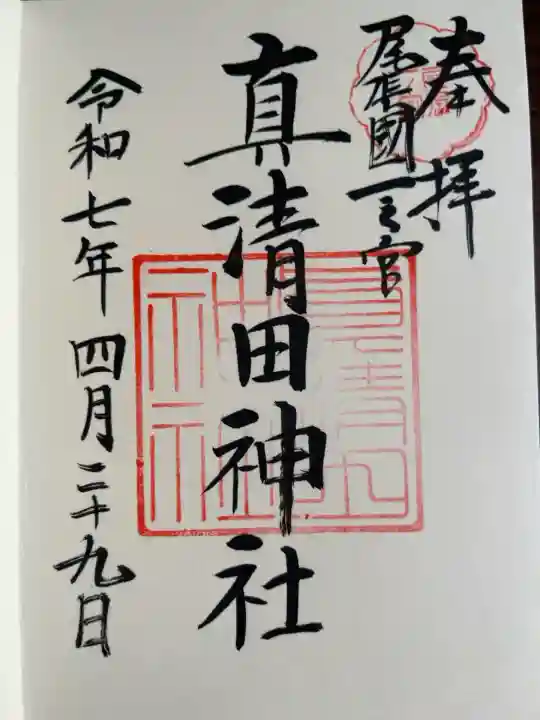 奉拝
尾張國一之宮
真清田神社
令和七年四月二十九日
真清田神社